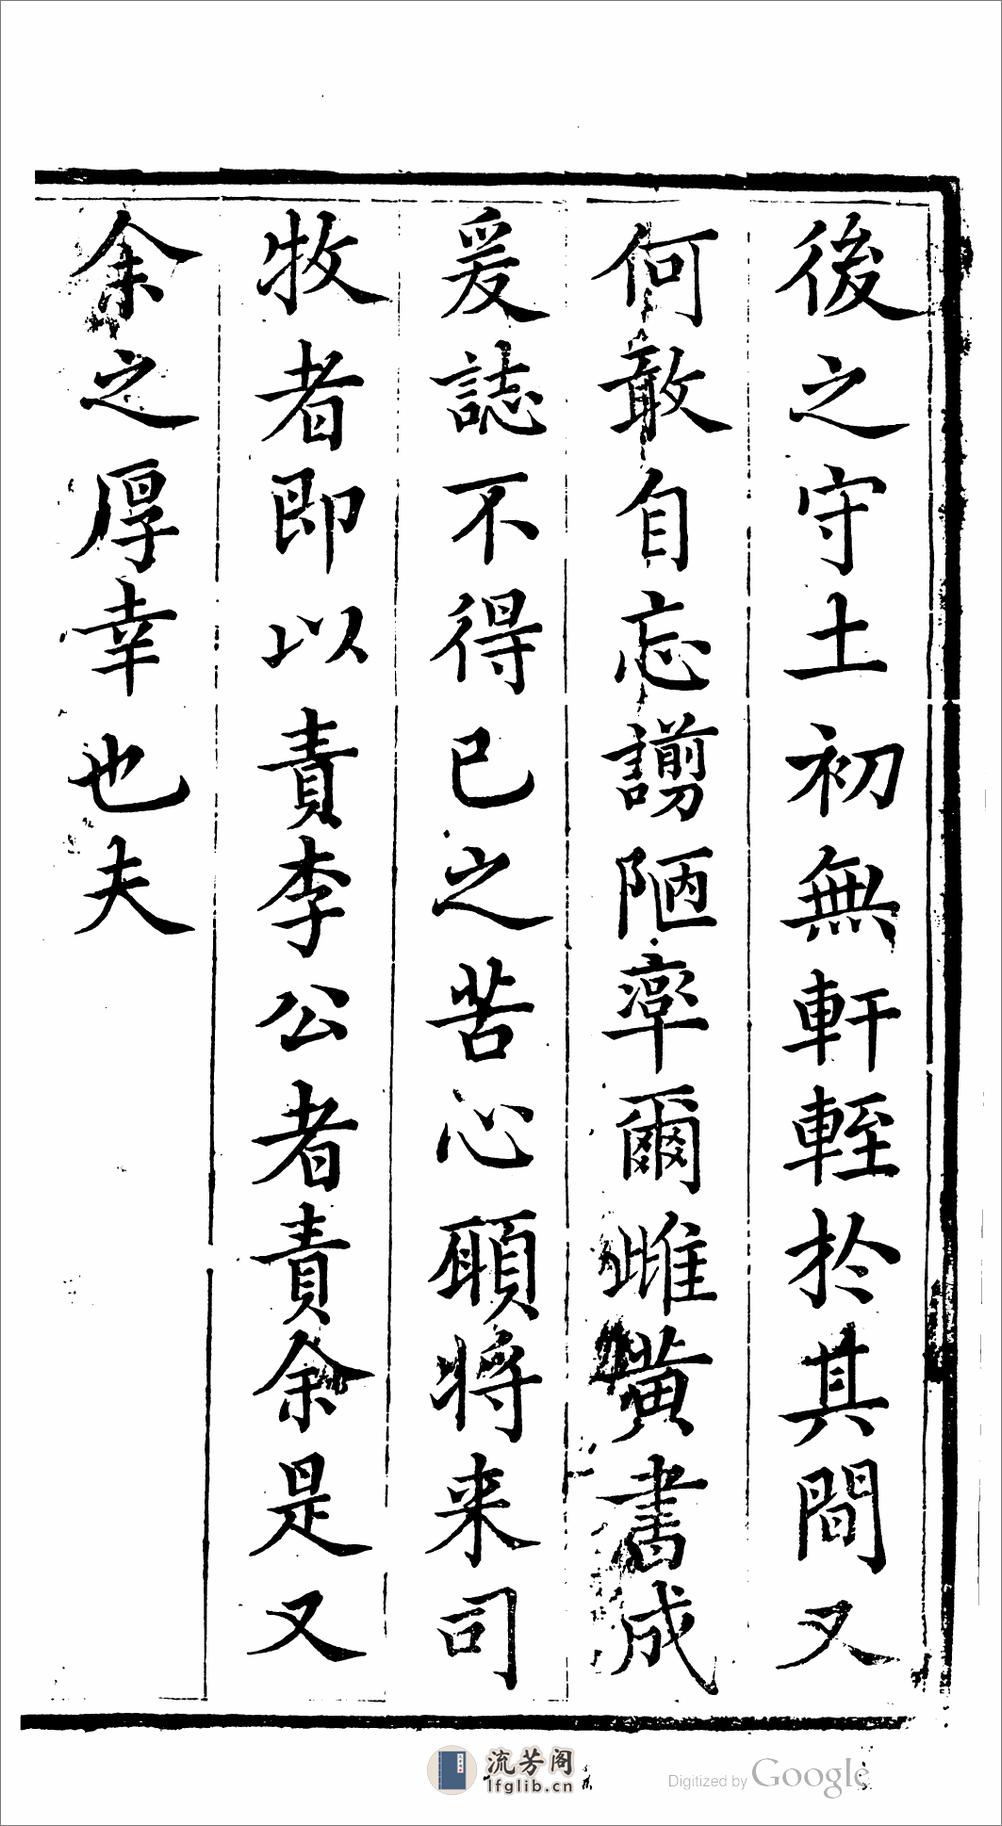 後之守土初無軒輊於其間又
何敢自忘謭陋率爾雌黃書成
爰誌不得已之苦心願將来司
牧者即以責李公者責余是又
余之厚幸也夫
流芳阁
lfglib.cn
Digitized by Google